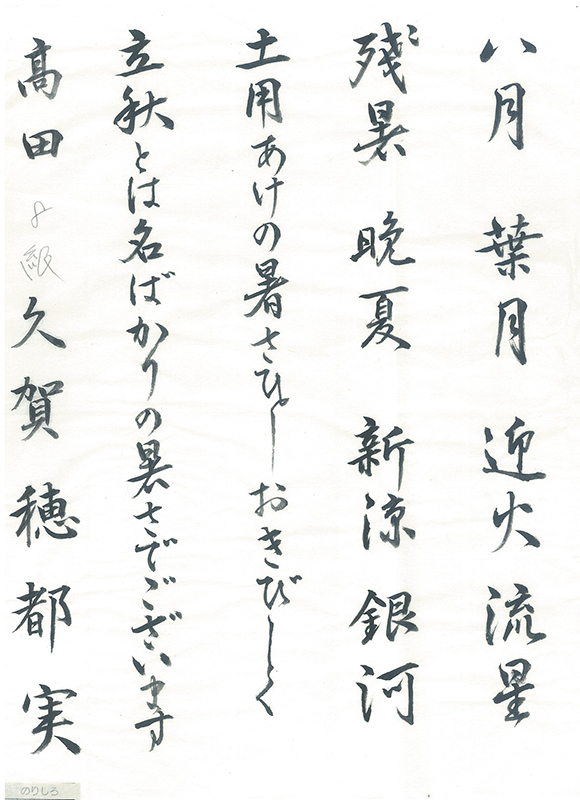 八月 葉月 迎火 流星
残暑 晩夏 新涼 銀河
土用あけの暑さひとしおきびしく
立秋とは名ばかりの暑さでございます
髙田 8級 久賀穂都実
のりしろ